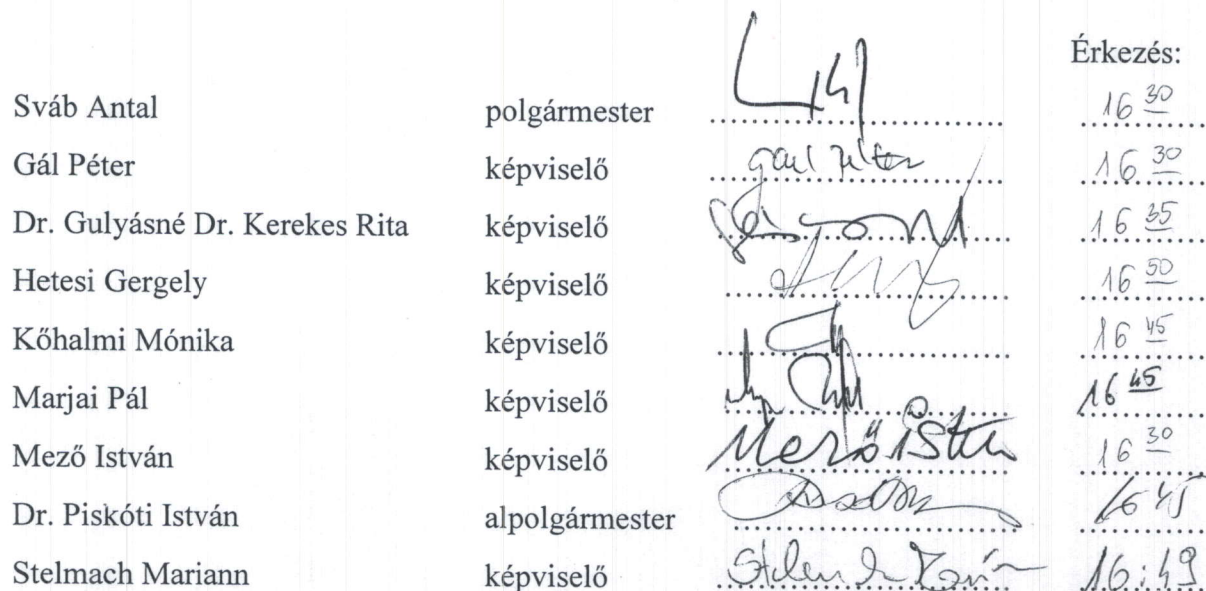 Érkezés:
Sváb Antal polgármester 16 30
Gál Péter képviselő 16 30
Dr. Gulyásné Dr. Kerekes Rita képviselő 16 35
Hetesi Gergely képviselő 16 50
Kőhalmi Mónika képviselő 16 45
Marjai Pál képviselő 16 45
Mező István képviselő Mező István 16 30
Dr. Piskóti István alpolgármester 16 45
Stelmach Mariann képviselő 16:49